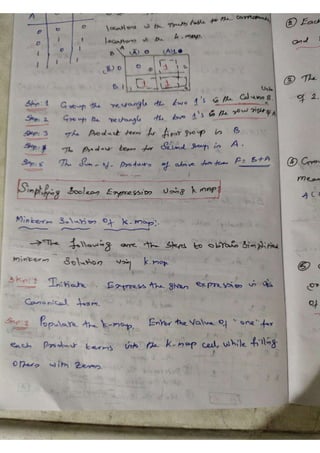 A
0 0 0
0 1 1
1 0 1
1 1 1
locations in the Truth table to the
locations in the k-map.
B A (A̅) 0 (A) 1
(B̅) 0
B 1
1
1 1
Step: 1 Group the rectangle the two 1's in the Column B
Step: 2 Group the rectangle the two 1's the row A
Step: 3 The Product term for first group is B
The Product term for Second group is A.
Step: 5 The Sum-of-Products of above F= B+A
Simplifying Boolean Expression Using k map
Minterm Solution of k. map:
→ The following are the steps to obtain Simplified
minterm Solution using k. map
Step: 1 Initiate. Express the given expression in its
Canonical form
Step: 2 Populate the k-map. Enter the Value of "one" for
each Product terms into the k-map cell, while filling
others with zeros
② Each
and
③ The
of 2.
④
⑤
of